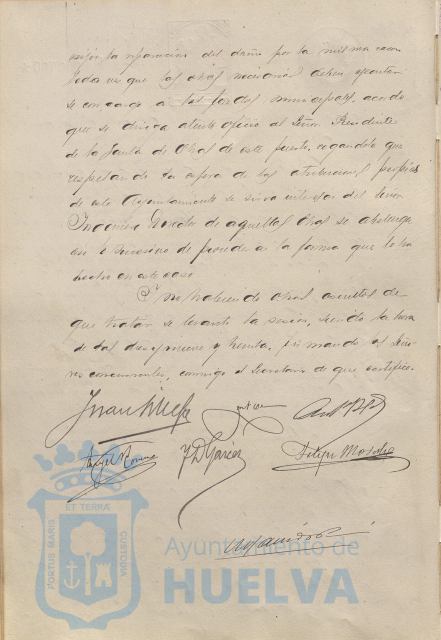 la reparacion del daño por la misma
toda vez que las obras
se con cargo a los fondos municipales, acordó
que se dirija atento oficio al Señor Presidente
de la Junta de Obras de este puerto, rogandole que
respetando la esfera de las atribuciones propias
de este Ayuntamiento se sirva interesar del Señor
Ingeniero Director de aquellas obras se abstenga
en lo sucesivo de proceder en la forma que lo ha
hecho en este caso.
Y no habiendo otros asuntos de
que tratar se levantó la sesion, siendo la hora
de las diez y nueve y treinta, firmando los Seño-
res concurrentes, conmigo el Secretario de que certifico.
Juan
F D Garcia
Felipe
PORTUS MARIS ET TERRÆ CUSTODIA
Ayuntamiento de
HUELVA